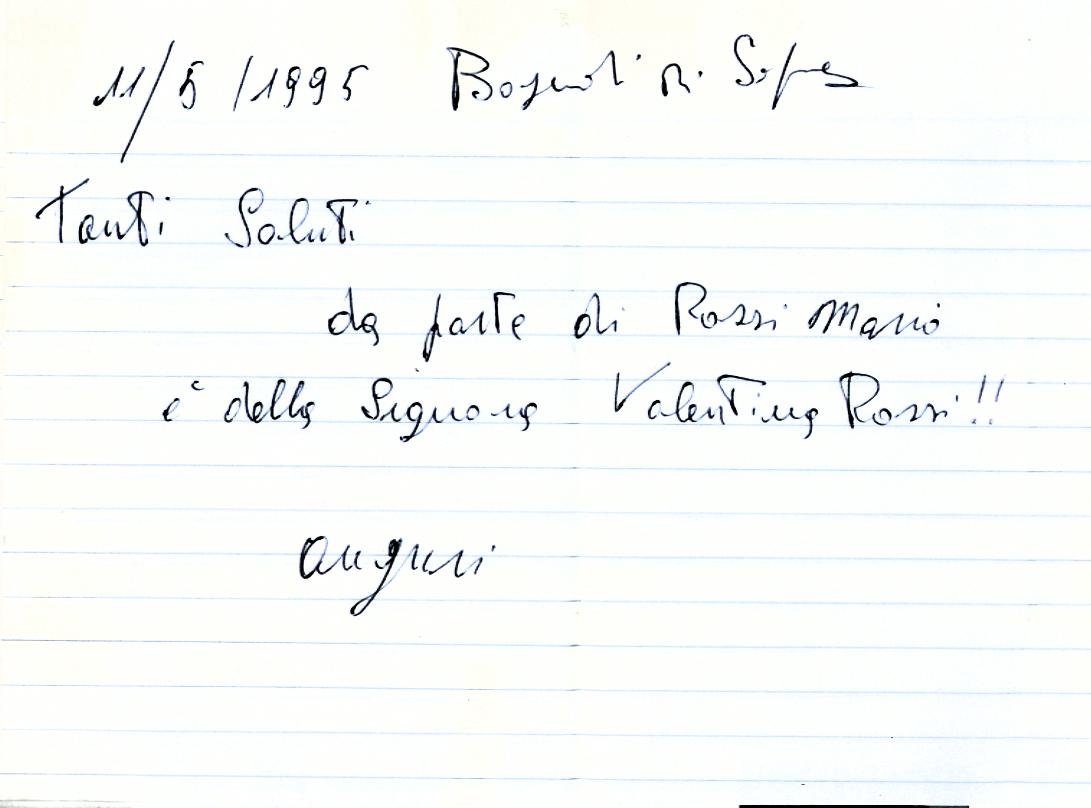 11/5/1995 Bagnoli di Sopra
Tanti Saluti
da parte di Rossi Mario
e della Signora Valentina Rossi!!
auguri